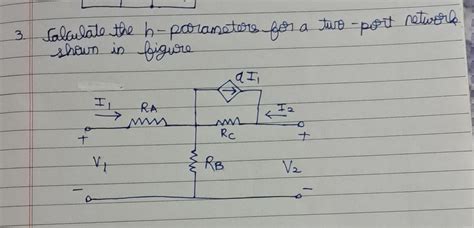 3. Calculate the h-parameters for a two-port network
shown in figure
αI₁
I₁
RA
I₂
RC
+
+
V₁
RB
V₂
-
-